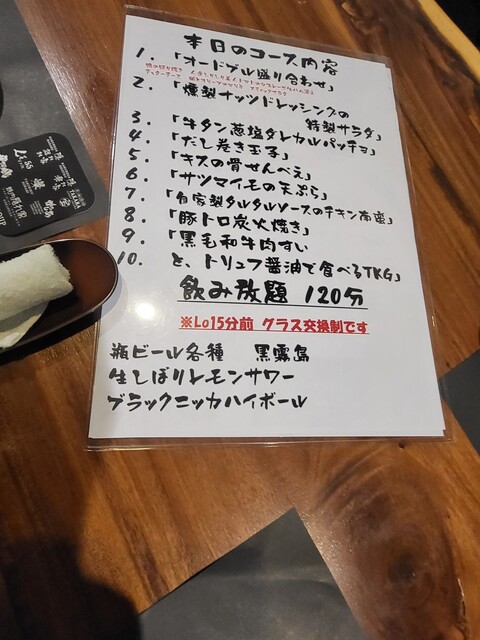 本日のコース内容
1. 「オードブル盛り合わせ」
2. 「燻製ナッツドレッシングの
特製サラダ」
3. 「牛タン葱塩タレカルパッチョ」
4. 「だし巻き玉子」
5. 「キスの骨せんべえ」
6. 「サツマイモの天ぷら」
7. 「自家製タルタルソースのチキン南蛮」
8. 「豚トロ炭火焼き」
9. 「黒毛和牛肉すい
10. と、トリュフ醤油で食べるTKG」
飲み放題 120分
※Lo15分前 グラス交換制です
瓶ビール各種 黒霧島
生しぼりレモンサワー
ブラックニッカハイボール